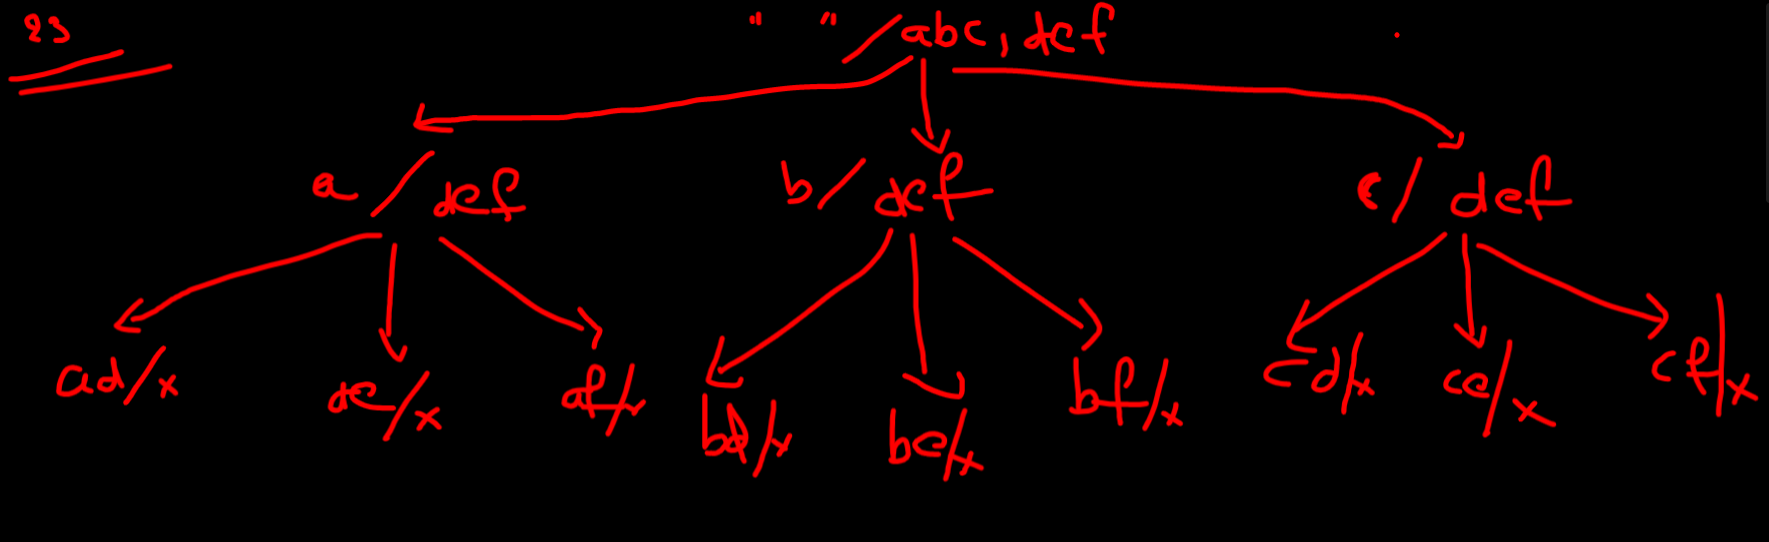 23
" " / abc, def
a / def b / def c / def
ad/x ae/x af/x bd/x be/x bf/x cd/x ce/x cf/x